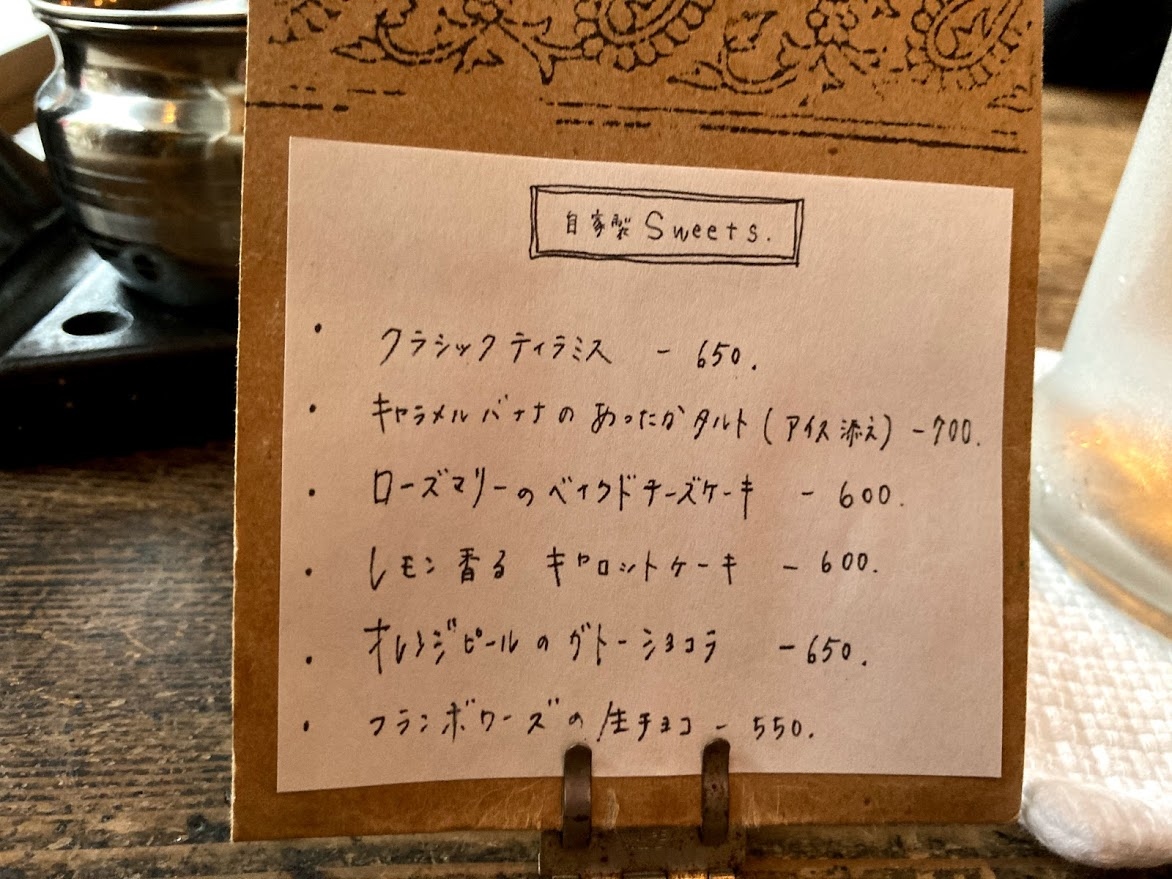 自家製 Sweets.
・ クラシックティラミス - 650.
・ キャラメルバナナのあったかタルト(アイス添え) - 700.
・ ローズマリーのベイクドチーズケーキ - 600.
・ レモン香る キャロットケーキ - 600.
・ オレンジピールのガトーショコラ - 650.
・ フランボワーズの生チョコ - 550.